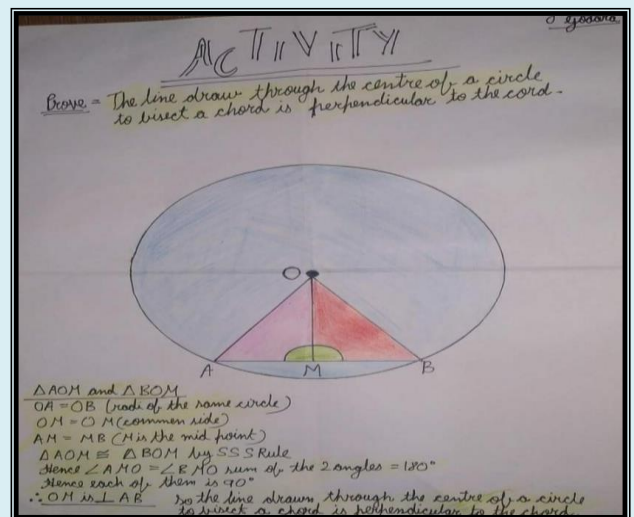 O Godara
ACTIVITY
Prove = The line draw through the centre of a circle
to bisect a chord is perpendicular to the cord.
O
A M B
△AOM and △BOM
OA = OB (radi of the same circle)
OM = OM (commen side)
AM = MB (M is the mid point)
△AOM ≅ △BOM by SSS Rule
Hence ∠AMO = ∠BMO sum of the 2 angles = 180°
Hence each of them is 90°
∴ OM is ⊥ AB so the line drawn through the centre of a circle
to bisect a chord is perpendicular to the chord.